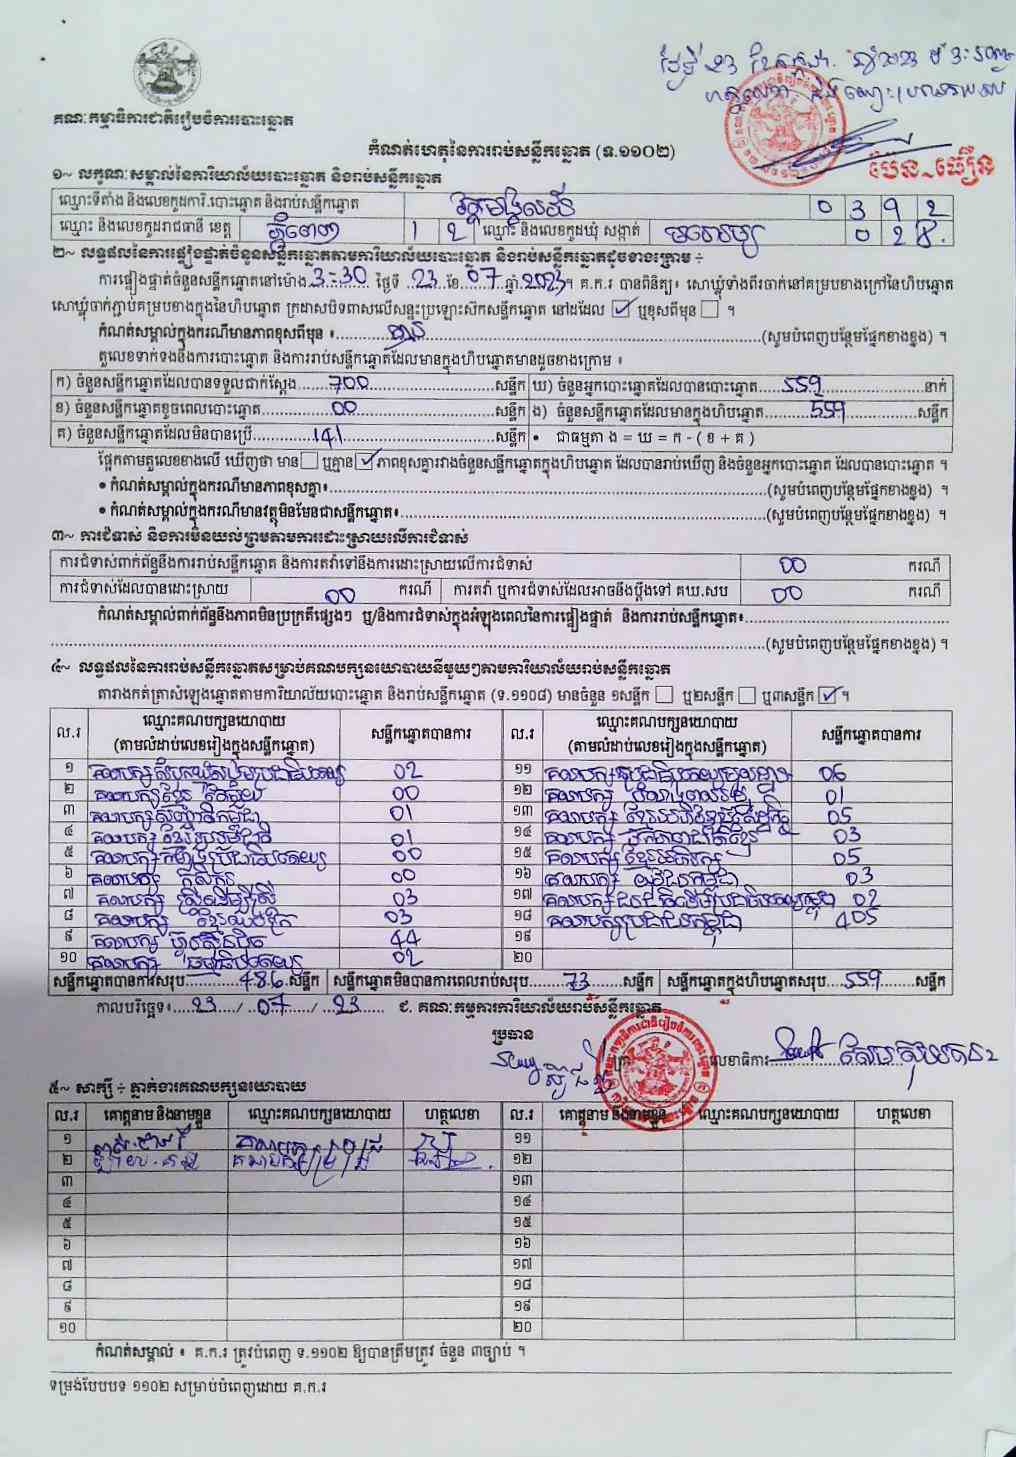 គណៈកម្មាធិការជាតិរៀបចំការបោះឆ្នោត
កំណត់ហេតុនៃការរាប់សន្លឹកឆ្នោត (ទ.១១០២)
ប៉ែន~ធឿន
១~ លក្ខណៈសម្គាល់នៃការិយាល័យបោះឆ្នោត និងរាប់សន្លឹកឆ្នោត
ឈ្មោះទីតាំង និងលេខកូដការិ.បោះឆ្នោត និងរាប់សន្លឹកឆ្នោត 0 3 9 2
ឈ្មោះ និងលេខកូដរាជធានី ខេត្ត ភ្នំពេញ 1 2 ឈ្មោះ និងលេខកូដឃុំ សង្កាត់ 0 2 8
២~ លទ្ធផលនៃការផ្ទៀងផ្ទាត់ចំនួនសន្លឹកឆ្នោតតាមការិយាល័យបោះឆ្នោត និងរាប់សន្លឹកឆ្នោតដូចខាងក្រោម ÷
ការផ្ទៀងផ្ទាត់ចំនួនសន្លឹកឆ្នោតនៅម៉ោង 3:30 ថ្ងៃទី 23 ខែ 07 ឆ្នាំ 2023 ។ គ.ក.រ បានពិនិត្យ៖ សោឃ្លុំទាំងពីរចាក់នៅគម្របខាងក្រៅនៃហិបឆ្នោត
សោឃ្លុំចាក់ភ្ជាប់គម្របខាងក្នុងនៃហិបឆ្នោត ក្រដាសបិទពាសលើសន្ទះប្រឡោះស៊កសន្លឹកឆ្នោត នៅដដែល ☑ ឬខុសពីមុន ☐ ។
កំណត់សម្គាល់ក្នុងករណីមានភាពខុសពីមុន ៖ គ្មាន (សូមបំពេញបន្ថែមផ្នែកខាងខ្នង) ។
តួលេខទាក់ទងនឹងការបោះឆ្នោត និងការរាប់សន្លឹកឆ្នោតដែលមានក្នុងហិបឆ្នោតមានដូចខាងក្រោម ៖
ក) ចំនួនសន្លឹកឆ្នោតដែលបានទទួលជាក់ស្តែង 700 សន្លឹក ឃ) ចំនួនអ្នកបោះឆ្នោតដែលបានបោះឆ្នោត 559 នាក់
ខ) ចំនួនសន្លឹកឆ្នោតខូចពេលបោះឆ្នោត 00 សន្លឹក ង) ចំនួនសន្លឹកឆ្នោតដែលមានក្នុងហិបឆ្នោត 559 សន្លឹក
គ) ចំនួនសន្លឹកឆ្នោតដែលមិនបានប្រើ 141 សន្លឹក • ជាធម្មតា ង = ឃ = ក - ( ខ + គ )
ផ្អែកតាមតួលេខខាងលើ ឃើញថា មាន ☐ ឬគ្មាន ☑ ភាពខុសគ្នារវាងចំនួនសន្លឹកឆ្នោតក្នុងហិបឆ្នោត ដែលបានរាប់ឃើញ និងចំនួនអ្នកបោះឆ្នោត ដែលបានបោះឆ្នោត ។
• កំណត់សម្គាល់ក្នុងករណីមានភាពខុសគ្នា៖ (សូមបំពេញបន្ថែមផ្នែកខាងខ្នង) ។
• កំណត់សម្គាល់ក្នុងករណីមានវត្ថុមិនមែនជាសន្លឹកឆ្នោត៖ (សូមបំពេញបន្ថែមផ្នែកខាងខ្នង) ។
៣~ ការជំទាស់ និងការមិនយល់ព្រមតាមការដោះស្រាយលើការជំទាស់
ការជំទាស់ពាក់ព័ន្ធនឹងការរាប់សន្លឹកឆ្នោត និងការតវ៉ាទៅនឹងការដោះស្រាយលើការជំទាស់ 00 ករណី
ការជំទាស់ដែលបានដោះស្រាយ 00 ករណី ការតវ៉ា ឬការជំទាស់ដែលអាចនឹងប្តឹងទៅ គឃ.សប 00 ករណី
កំណត់សម្គាល់ពាក់ព័ន្ធនឹងភាពមិនប្រក្រតីផ្សេងៗ ឬ/និងការជំទាស់ក្នុងអំឡុងពេលនៃការផ្ទៀងផ្ទាត់ និងការរាប់សន្លឹកឆ្នោត៖
(សូមបំពេញបន្ថែមផ្នែកខាងខ្នង) ។
៤~ លទ្ធផលនៃការរាប់សន្លឹកឆ្នោតសម្រាប់គណបក្សនយោបាយនីមួយៗតាមការិយាល័យរាប់សន្លឹកឆ្នោត
តារាងកត់ត្រាសំឡេងឆ្នោតតាមការិយាល័យបោះឆ្នោត និងរាប់សន្លឹកឆ្នោត (ទ.១១០៨) មានចំនួន ១សន្លឹក ☐ ឬ២សន្លឹក ☐ ឬ៣សន្លឹក ☑ ។
ល.រ ឈ្មោះគណបក្សនយោបាយ (តាមលំដាប់លេខរៀងក្នុងសន្លឹកឆ្នោត) សន្លឹកឆ្នោតបានការ ល.រ ឈ្មោះគណបក្សនយោបាយ (តាមលំដាប់លេខរៀងក្នុងសន្លឹកឆ្នោត) សន្លឹកឆ្នោតបានការ
១ គណបក្សសំបុកឃ្មុំសង្គមប្រជាធិបតេយ្យ 02 ១១ គណបក្សប្រជាធិបតេយ្យមូលដ្ឋាន 06
២ គណបក្ស ខ្មែរ 00 ១២ គណបក្ស 01
៣ គណបក្សសញ្ជាតិកម្ពុជា 01 ១៣ គណបក្ស ខ្មែរអភិវឌ្ឍន៍សេដ្ឋកិច្ច 05
៤ គណបក្ស ខ្មែររួបរួមជាតិ 01 ១៤ គណបក្ស ឯកភាពជាតិខ្មែរ 03
៥ គណបក្ស កម្លាំងប្រជាធិបតេយ្យ 00 ១៥ គណបក្ស ខ្មែរអភិរក្ស 05
៦ គណបក្ស កសិករ 00 ១៦ គណបក្ស យុវជនកម្ពុជា 03
៧ គណបក្ស ស្ត្រីដើម្បីស្ត្រី 03 ១៧ គណបក្សជនជាតិដើមប្រជាធិបតេយ្យកម្ពុជា 02
៨ គណបក្ស ខ្មែរឈប់ក្រ 03 ១៨ គណបក្សប្រជាជនកម្ពុជា 405
៩ គណបក្ស ហ៊្វុនស៊ិនប៉ិច 44 ១៩
១០ គណបក្ស ធម្មាធិបតេយ្យ 02 ២០
សន្លឹកឆ្នោតបានការសរុប 486 សន្លឹក សន្លឹកឆ្នោតមិនបានការពេលរាប់សរុប 73 សន្លឹក សន្លឹកឆ្នោតក្នុងហិបឆ្នោតសរុប 559 សន្លឹក
កាលបរិច្ឆេទ៖ 23 / 07 / 23 ជ. គណៈកម្មការការិយាល័យរាប់សន្លឹកឆ្នោត
ប្រធាន
លេខាធិការ
៥~ សាក្សី ÷ ភ្នាក់ងារគណបក្សនយោបាយ
ល.រ គោត្តនាម និងនាមខ្លួន ឈ្មោះគណបក្សនយោបាយ ហត្ថលេខា ល.រ គោត្តនាម និងនាមខ្លួន ឈ្មោះគណបក្សនយោបាយ ហត្ថលេខា
១ ១១
២ ១២
៣ ១៣
៤ ១៤
៥ ១៥
៦ ១៦
៧ ១៧
៨ ១៨
៩ ១៩
១០ ២០
កំណត់សម្គាល់ ៖ គ.ក.រ ត្រូវបំពេញ ទ.១១០២ ឱ្យបានត្រឹមត្រូវ ចំនួន ៣ច្បាប់ ។
ទម្រង់បែបបទ ១១០២ សម្រាប់បំពេញដោយ គ.ក.រ